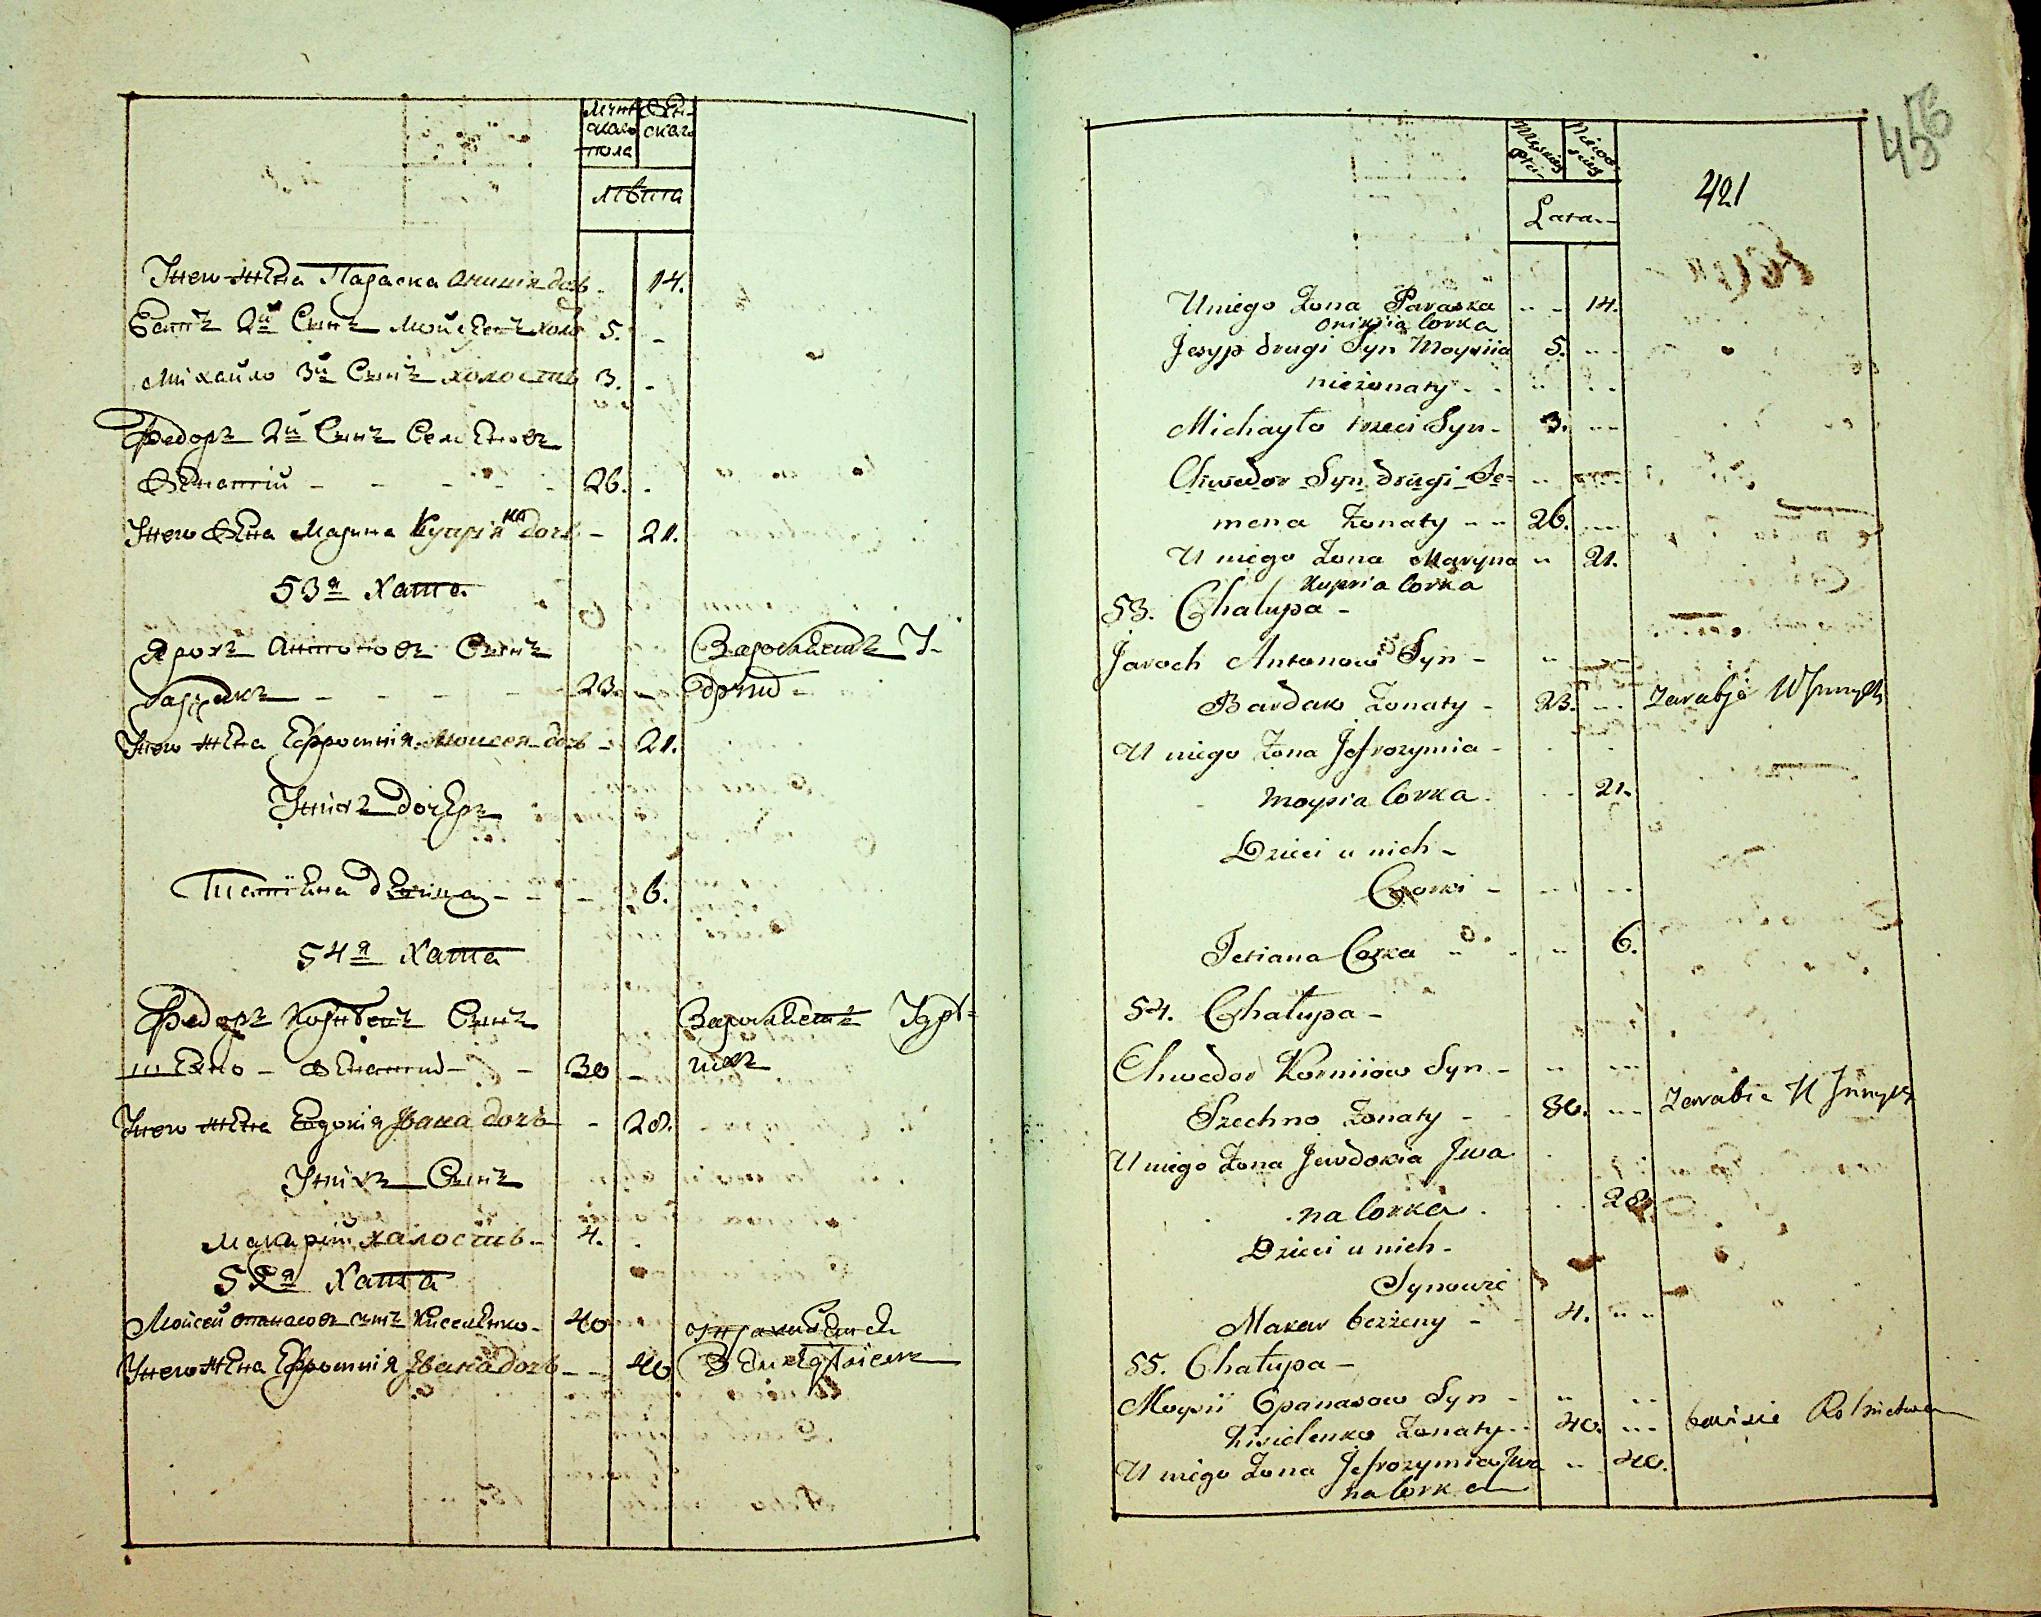 Мужескаго пола
Женскаго
лѣта
Унего жена Параска Онисія дочь - 14.
Есипъ 2й Сынъ Мойсеевъ холо 5. -
Михайло 3й Сынъ холостъ 3. -
Федоръ 2й Сынъ Семеновъ
Женатый - - - - - 26. -
Унего Жена Марина Купріянка дочь - 21.
53я Хата
Ярохъ Антоновъ Сынъ
Бардакъ - - - - - 23. -
Заробляетъ У-
Унего жена Ефросинія Моисея дочь - 21.
Унихъ дочерь
Татіена дочька - - - 6.
54я Хата
Федоръ Корнѣевъ Сынъ
Заробляетъ
шехно - Женатый - - 30 -
Унего жена Евдокія Ивана дочь - 28.
Унихъ Сынъ
Макарій холостъ - 4. -
55я Хата
Мойсей опанасовъ сынъ Киселенко - 40
Унего жена Ефросинія Ивана дочь - - 40
456
421
Męskiey Płci
Niewieskiey
Lata -
U niego Żona Paraska - - 14.
Onikiia Corka
Jesyp drugi Syn Moysiia 5. - -
nieżonaty - - - -
Michayło trzeci Syn - 3. - -
Chwedor Syn drugi Se=
mena Żonaty - - 26. - -
U niego Żona Maryna - 21.
Kupria Corka
53. Chałupa -
Jaroch Antonow Syn -
Bardak Żonaty - 23. - - Zarabja U Jnnych
U niego Żona Jefrozymia -
Moysia Corka - - 21.
Dzieci u nich -
Corki - - -
Tetiana Corka - - - 6.
54. Chałupa -
Chwedor Korniiow Syn - - -
Szechno Żonaty - 30. - - Zarabia U Jnnych
U niego Żona Jewdokia Jwa
na Corka - - 28.
Dzieci u nich -
Synowie
Makar bezżeny - - 4. - -
55. Chałupa -
Moysii Opanasow Syn - - -
Kisielenko Żonaty - 40. - - bawi sie Rolnictwem
U niego Żona Jefrozymia Jwa - 40.
na Corka